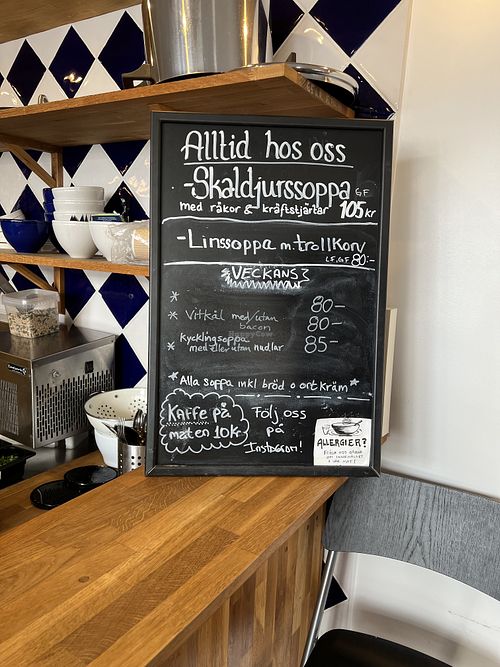 Alltid hos oss
-Skaldjurssoppa GF
med räkor & kräftstjärtar 105 kr
-Linssoppa m. trollkorv
LF, GF 80:-
VECKANS
* 80-
* Vitkål med/utan 80-
bacon
* Kycklingsoppa 85-
med eller utan nudlar
* Alla soppa inkl bröd o ostkräm *
Kaffe på
maten 10k
Följ oss
på
Instagram!
ALLERGIER?
HappyCow